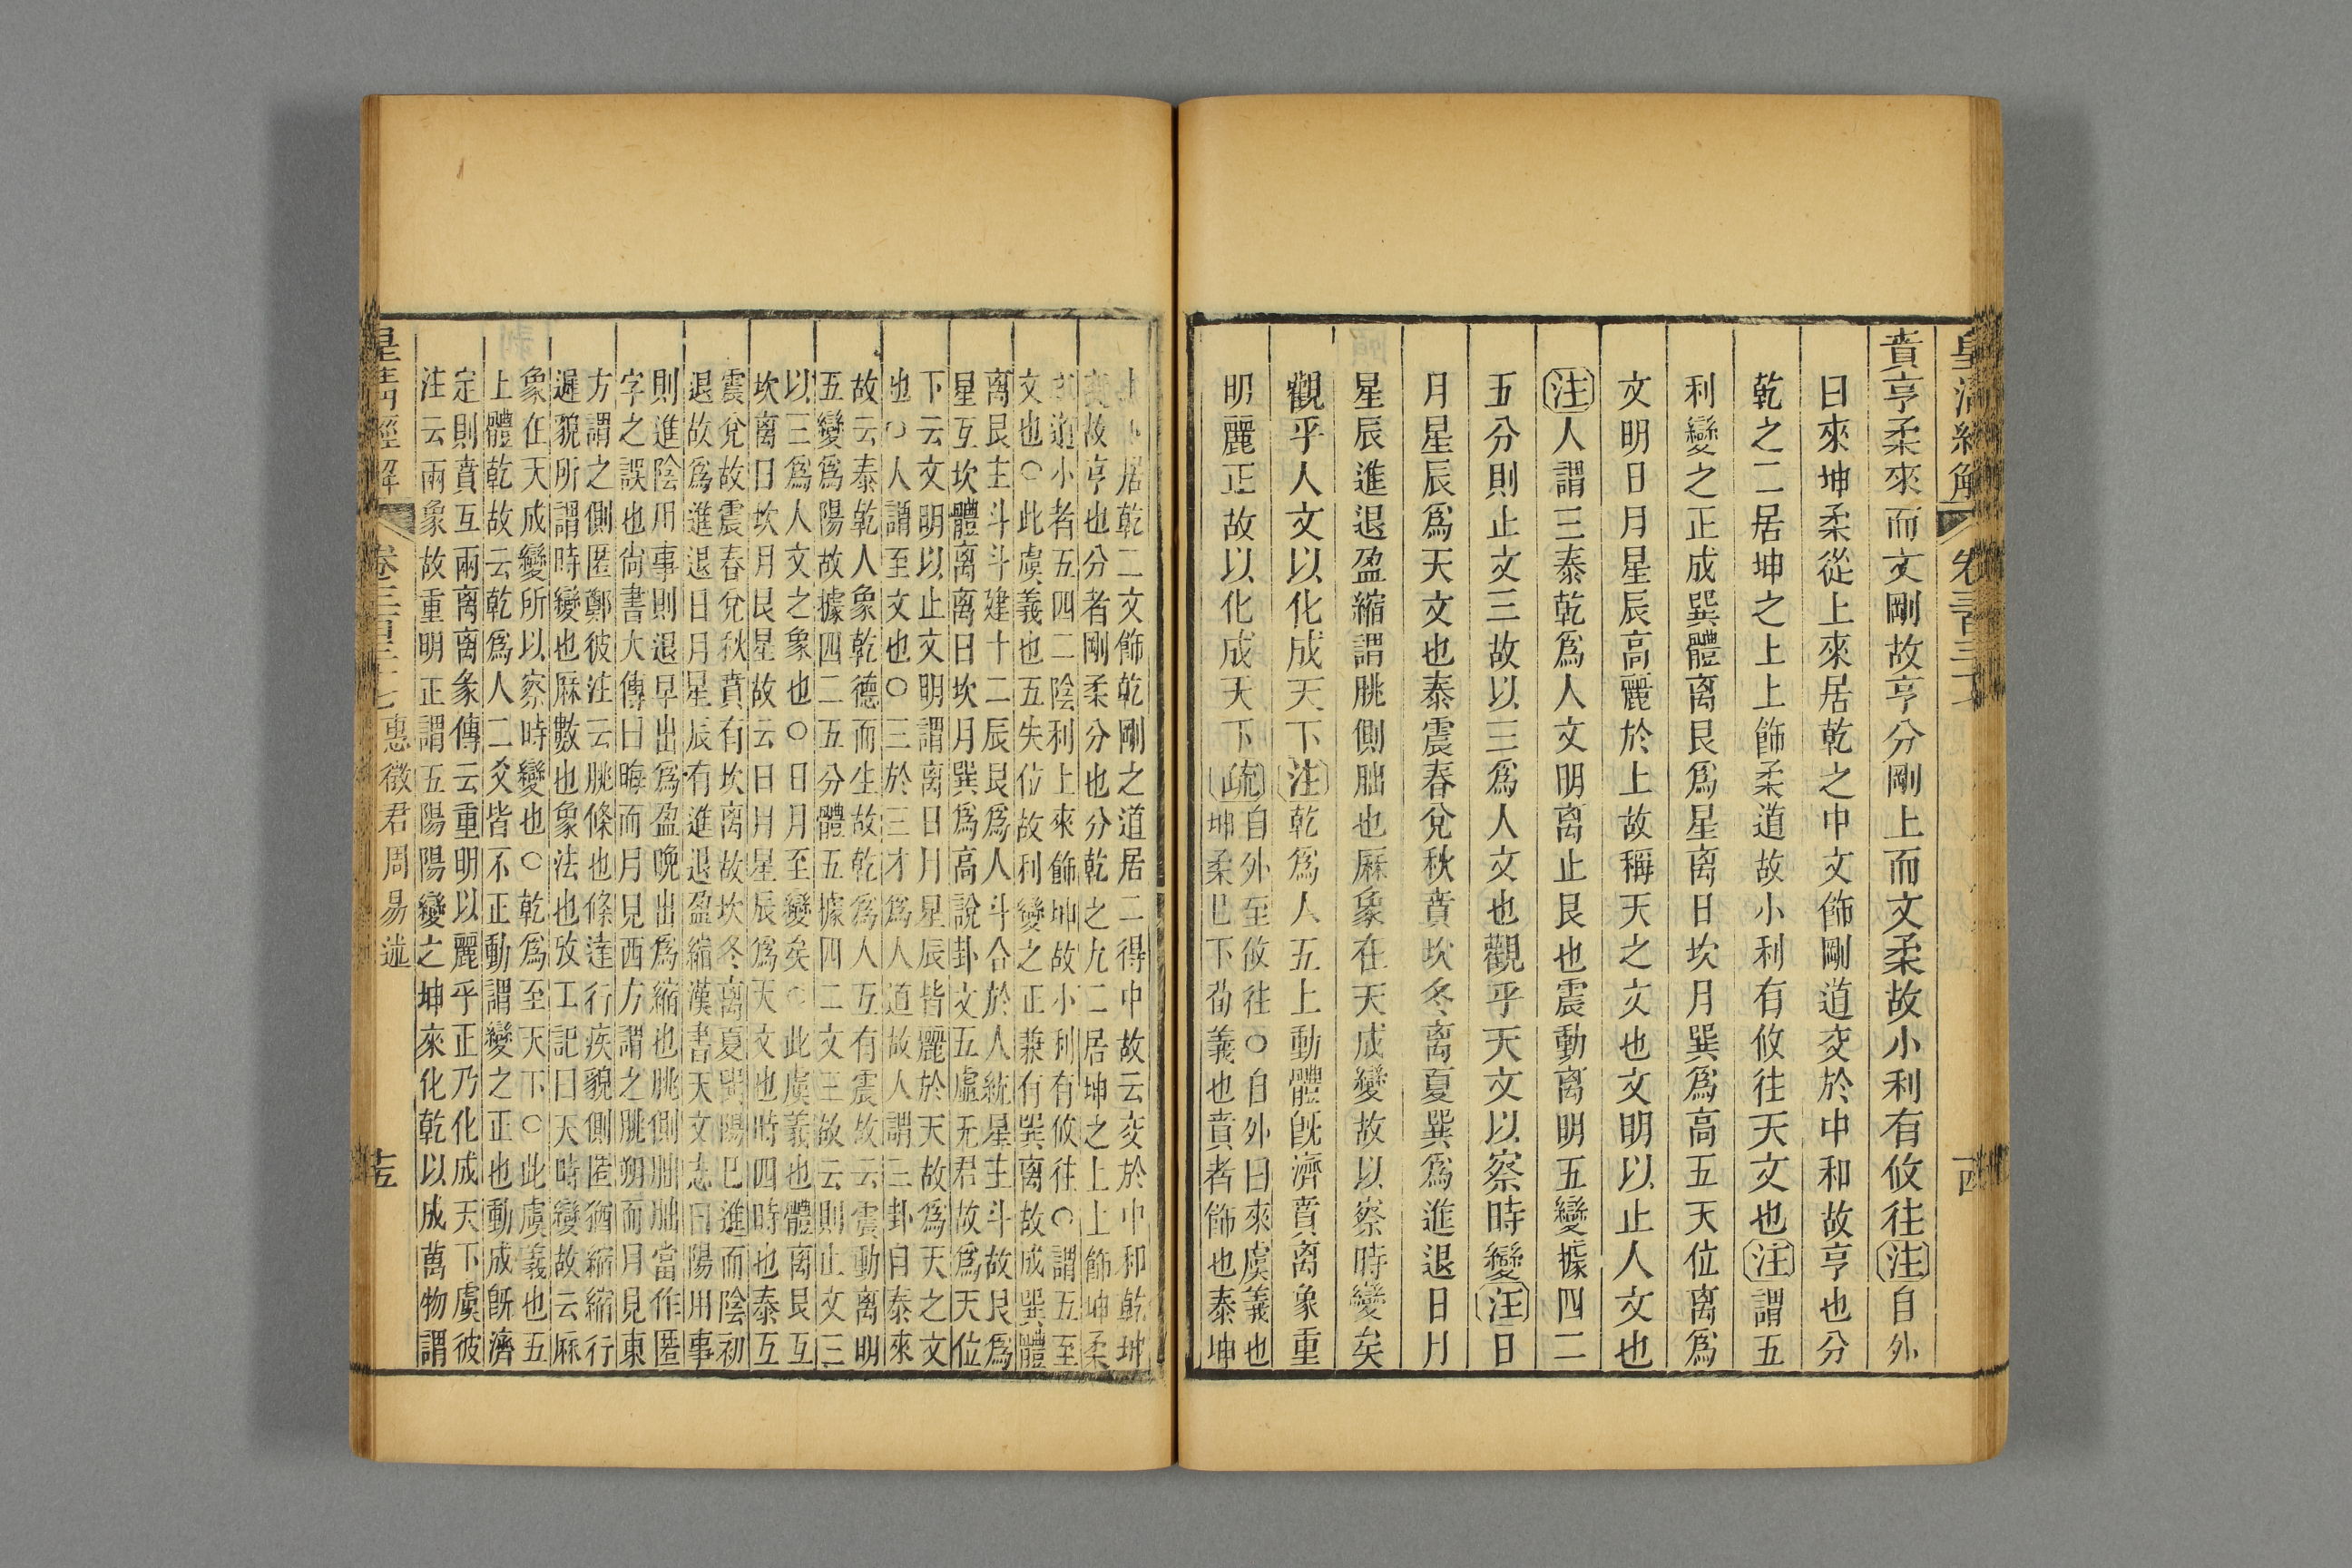 皇清經解 卷三百三十七 古
賁亨柔來而文剛故亨分剛上而文柔故小利有攸往注自外
曰來坤柔從上來居乾之中文飾剛道交於中和故亨也分
乾之二居坤之上上飾柔道故小利有攸往天文也注謂五
利變之正成巽體离艮爲星离日坎月巽爲高五天位离爲
文明日月星辰高麗於上故稱天之文也文明以止人文也
注人謂三泰乾爲人文明离止艮也震動离明五變據四二
五分則止文三故以三爲人文也觀乎天文以察時變注日
月星辰爲天文也泰震春兌秋賁坎冬离夏巽爲進退日月
星辰進退盈縮謂朓側朒也厤象在天成變故以察時變矣
觀乎人文以化成天下注乾爲人五上動體旣濟賁离象重
明麗正故以化成天下疏
自外至攸往○自外曰來虞義也
坤柔已下荀義也賁者飾也泰坤
上 居乾二文飾乾剛之道居二得中故云交於中和乾坤
交故亨也分者剛柔分也分乾之九二居坤之上上飾坤柔
 道小者五四二陰利上來飾坤故小利有攸往○謂五至
文也○此虞義也五失位故利變之正兼有巽离故成巽體
离艮主斗斗建十二辰艮爲人斗合於人統星主斗故艮爲
星互坎體离离日坎月巽爲高說卦文五虛无君故爲天位
下云文明以止文明謂离日月星辰皆麗於天故爲天之文
也○人謂至文也○三於三才爲人道故人謂三卦自泰來
故云泰乾人象乾德而生故乾爲人互有震故云震動离明
五變爲陽故據四二五分體五據四二文三故云則止文三
以三爲人文之象也○日月至變矣○此虞義也體离艮互
坎离日坎月艮星故云日月星辰爲天文也時四時也泰互
震兌故震春兌秋賁有坎离故坎冬离夏 陽巳進而陰初
退故爲進退日月星辰有進退盈縮漢書天文志曰陽用事
則進陰用事則退早出爲盈晚出爲縮也朓側朒朒當作匿
字之誤也尙書大傳曰晦而月見西方謂之朓朔而月見東
方謂之側匿鄭彼注云朓條也條達行疾貌側匿猶縮縮行
遲貌所謂時變也厤數也象法也攷工記曰天時變故云厤
象在天成變所以察時變也○乾爲至天下○此虞義也五
上體乾故云乾爲人二爻皆不正動謂變之正也動成旣濟
定則賁互兩离离彖傳云重明以麗乎正乃化成天下虞彼
注云兩象故重明正謂五陽陽變之坤來化乾以成萬物謂
皇淸經解 卷三百三十七 惠徵君周易述 十五